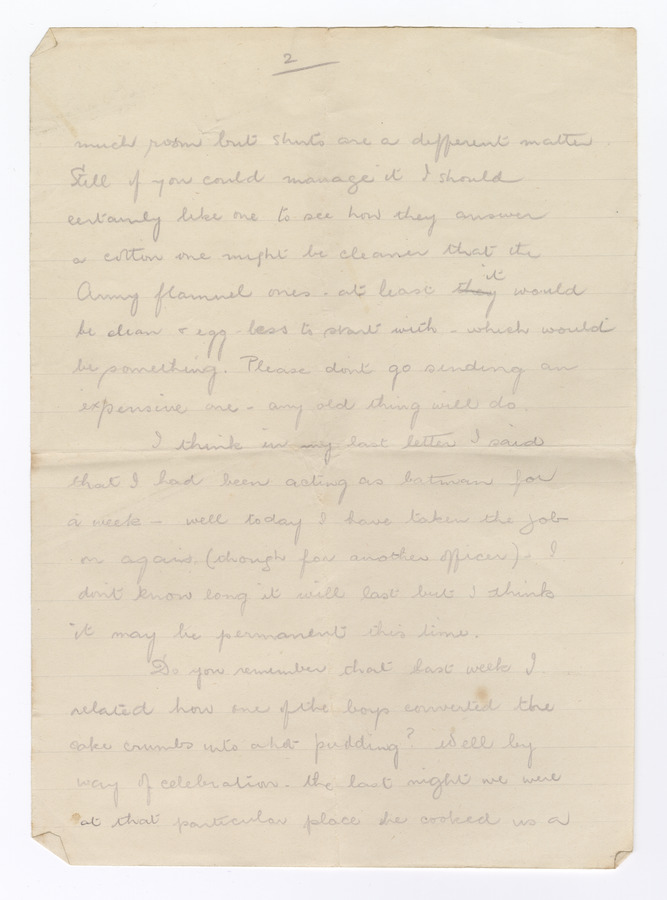 2
much room but shirts are a different matter
Still if you could manage it I should
certainly like one to see how they answer
a cotton one might be cleaner that the
Army flannel ones - at least they it would
be clean & egg-less to start with - which would
be something. Please dont go sending an
expensive one - any old thing will do.
I think in my last letter I said
that I had been acting as batman for
a week - well today I have taken the job
on again. (though for another officer). I
dont know long it will last but I think
it may be permanent this time.
Do you remember that last week I
related how one of the boys converted the
cake crumbs into a hot pudding? Well by
way of celebration - the last night we were
at that particular place he cooked us a